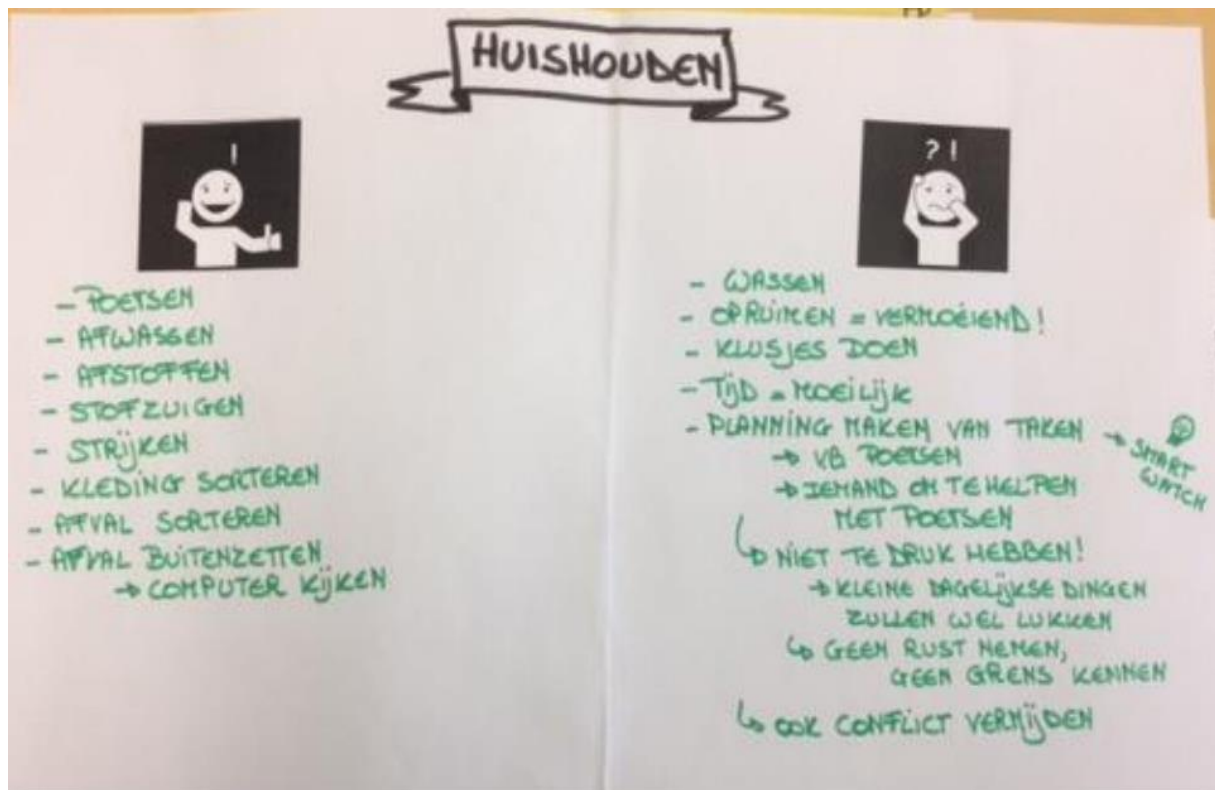 HUISHOUDEN
!
- POETSEN
- AFWASSEN
- AFSTOFFEN
- STOFZUIGEN
- STRIJKEN
- KLEDING SORTEREN
- AFVAL SORTEREN
- AFVAL BUITENZETTEN
→ COMPUTER KIJKEN
?!
- WASSEN
- OPRUIMEN = VERMOEIEND!
- KLUSJES DOEN
- TIJD = MOEILIJK
- PLANNING MAKEN VAN TAKEN → SMART
WATCH
→ VB POETSEN
→ IEMAND OM TE HELPEN
MET POETSEN
↳ NIET TE DRUK HEBBEN!
→ KLEINE DAGELIJKSE DINGEN
ZULLEN WEL LUKKEN
↳ GEEN RUST NEMEN,
GEEN GRENS KENNEN
↳ OOK CONFLICT VERMIJDEN